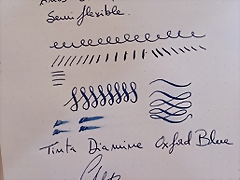 Semiflexible.
Tinta Diamine Oxford Blue